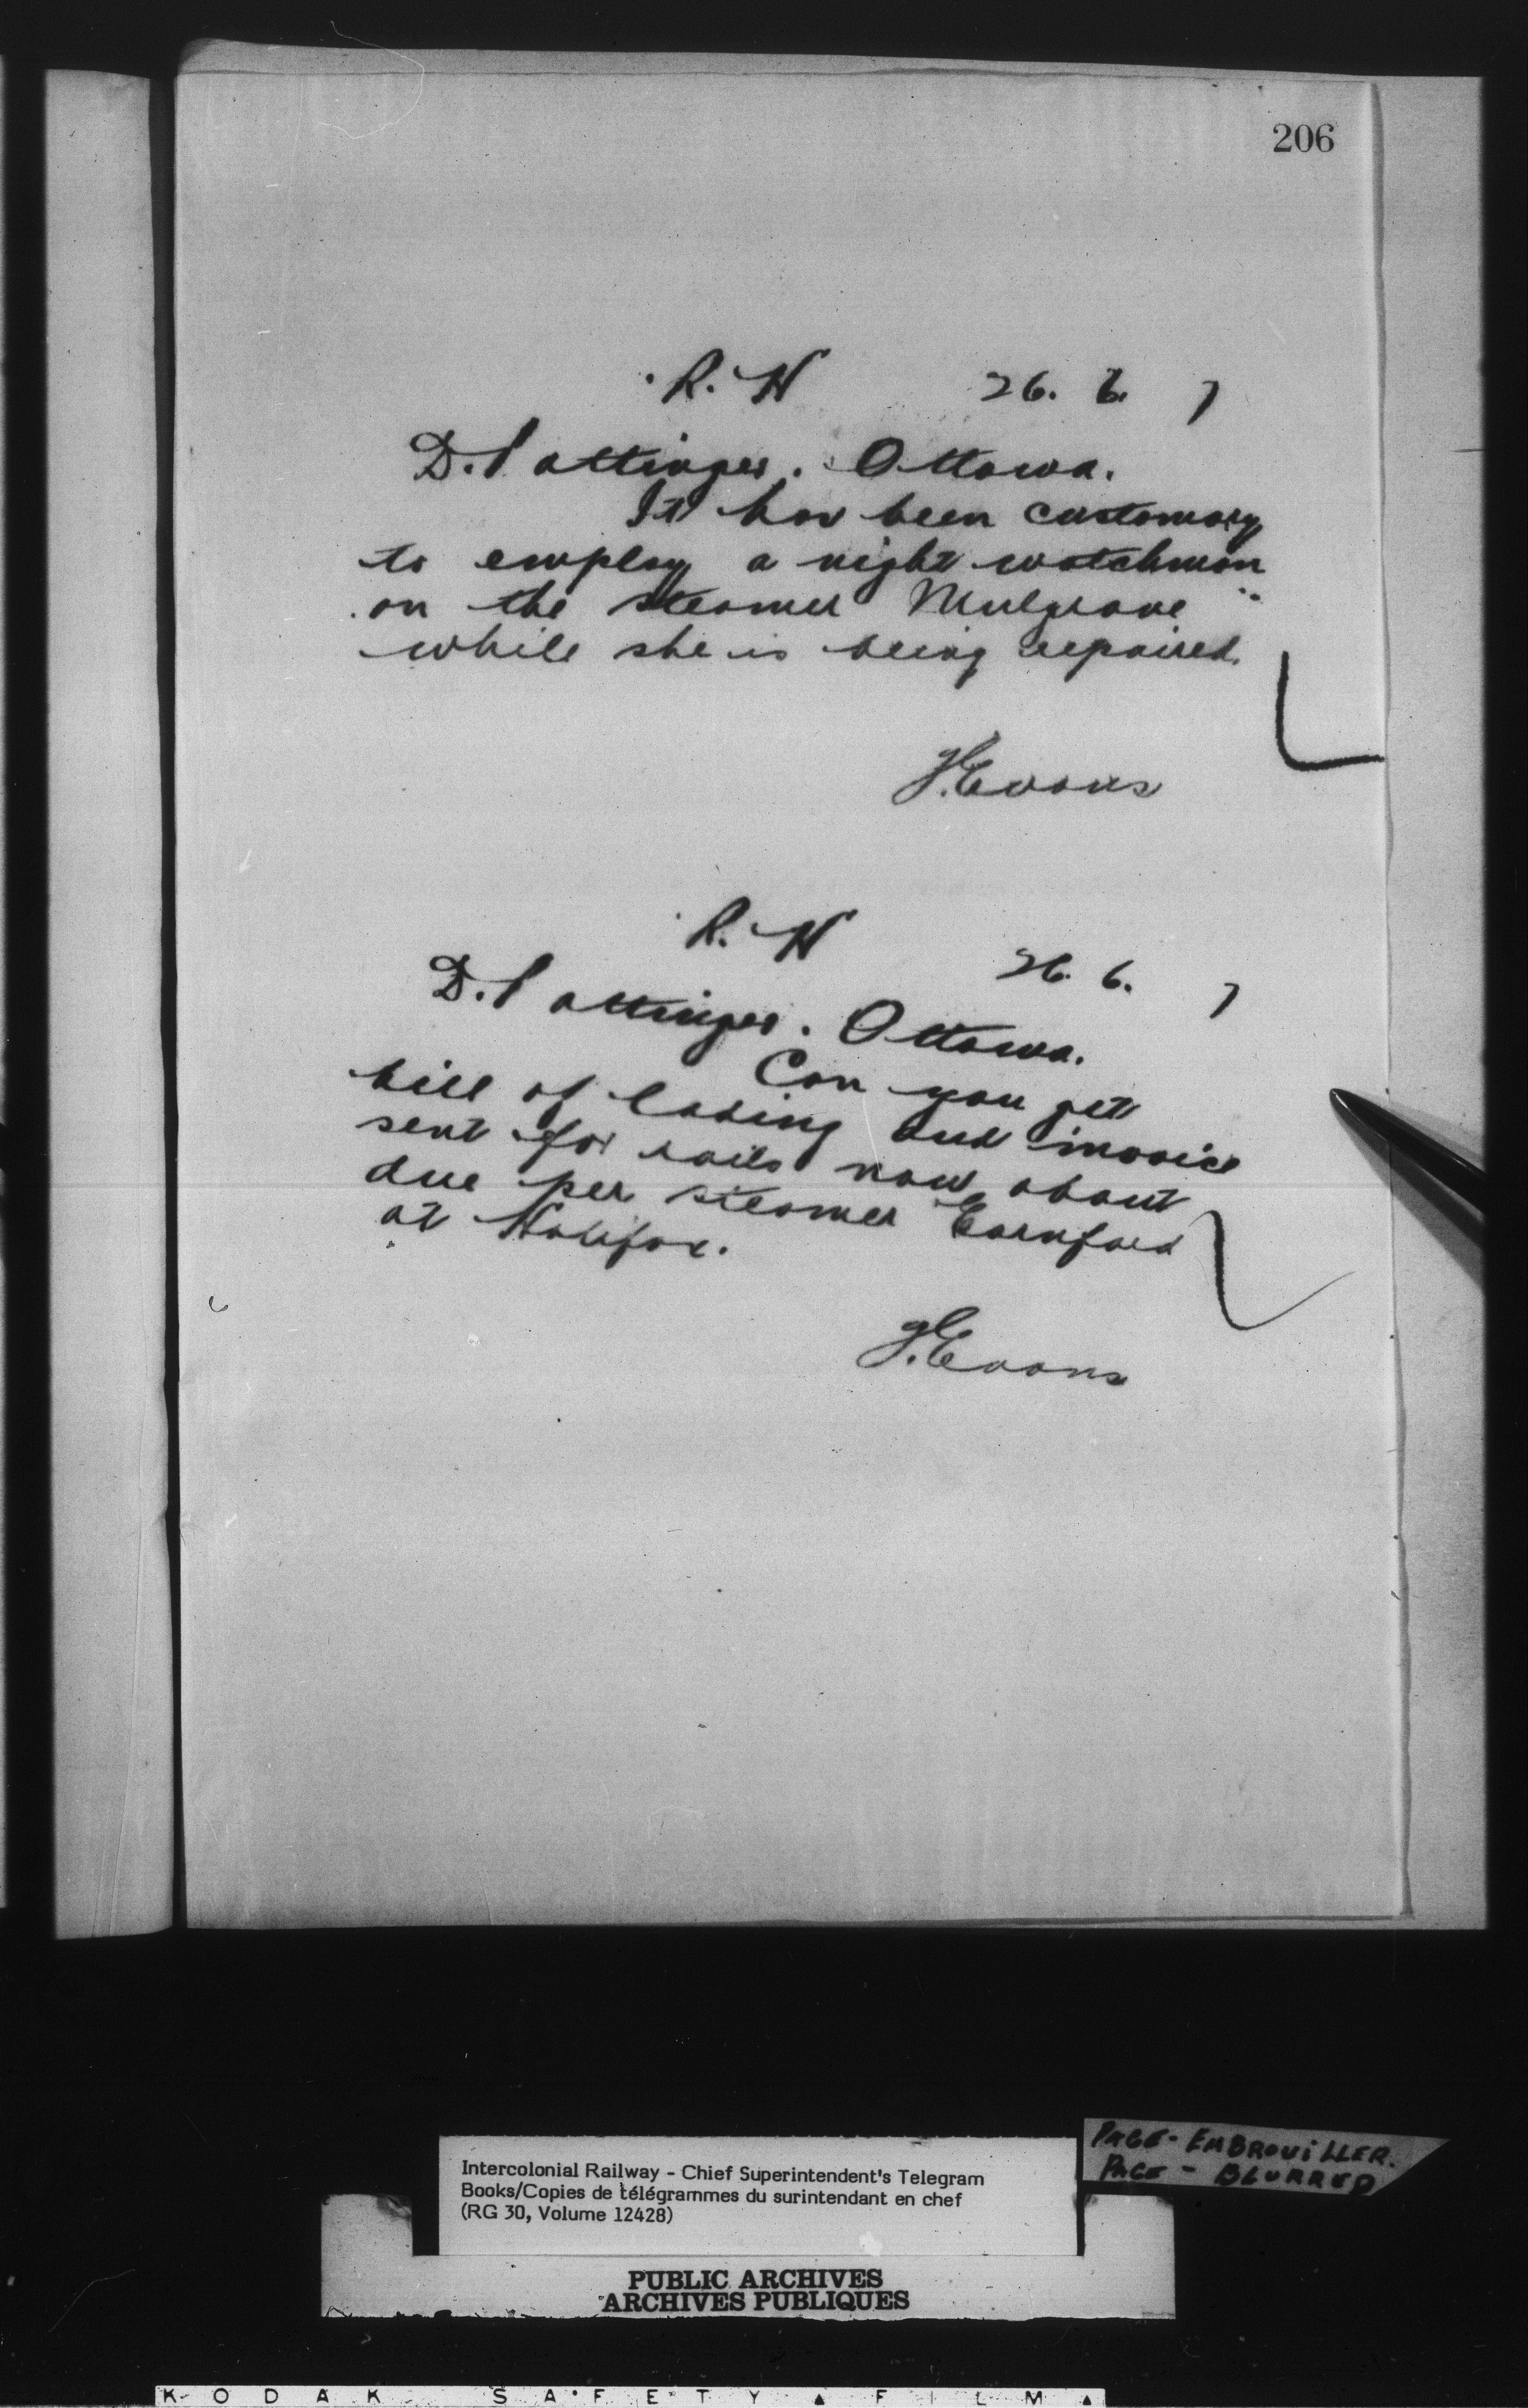 206
R. H 26. 6. 7
D. Pottinger. Ottawa.
It has been customary
to employ a night watchman
on the steamer "Mulgrave"
while she is being repaired.
J. Evans
R. H 26. 6. 7
D. Pottinger. Ottawa.
Can you get
bill of lading and invoice
sent for rails now about
due per steamer Earnford
at Halifax.
J. Evans
PAGE - EMBROUILLER.
PAGE - BLURRED
Intercolonial Railway - Chief Superintendent's Telegram
Books/Copies de télégrammes du surintendant en chef
(RG 30, Volume 12428)
PUBLIC ARCHIVES
ARCHIVES PUBLIQUES
KODAK SAFETY FILM